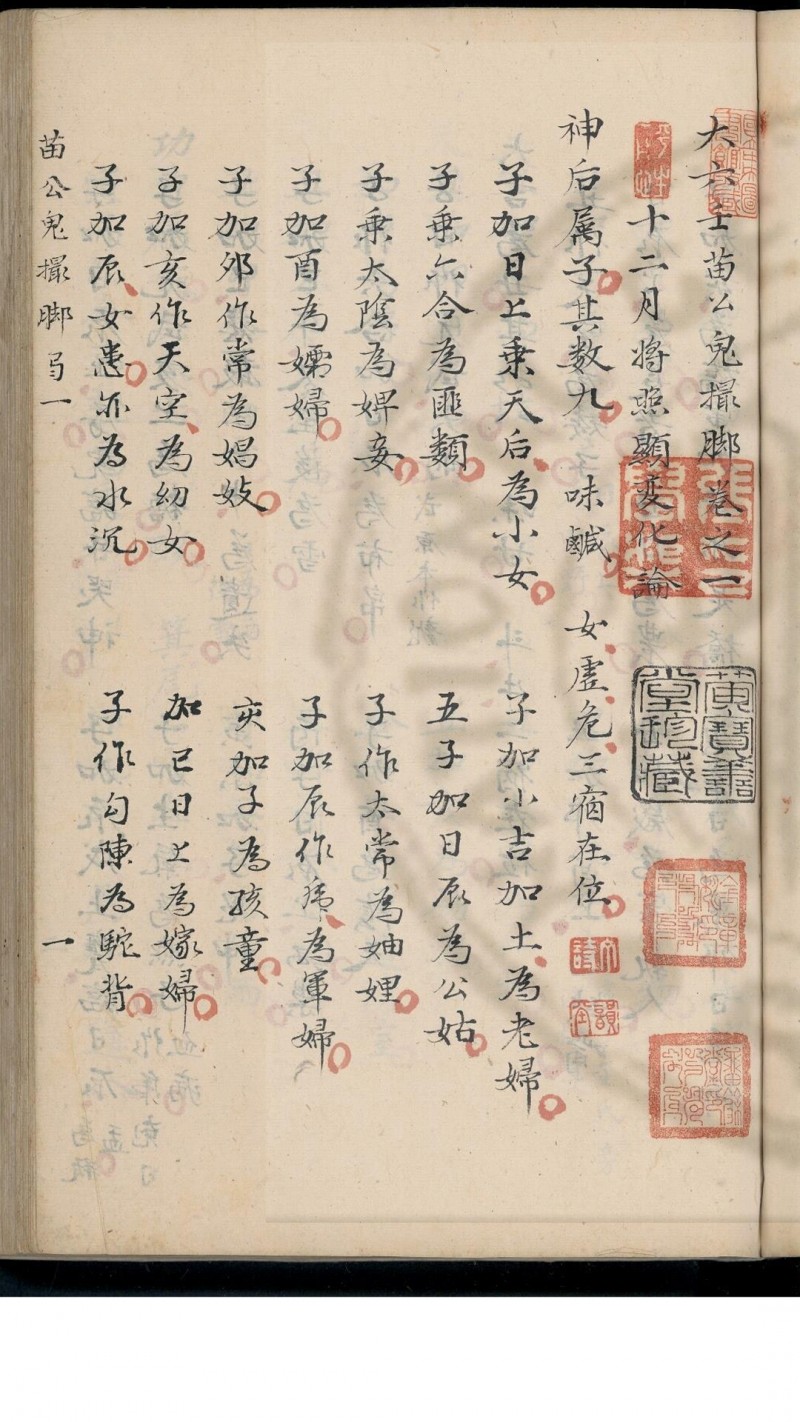 大六壬苗公鬼撮脚卷之一
十二月將照顯变化論
神后属子其数九 味鹹 女虛危三宿在位
子加日上乘天后為小女 子加小吉加土為老婦
子乘六合為匪類 五子加日辰為公姑
子乘太陰為婢妾 子作太常為妯娌
子加酉為孀婦 子加辰作為軍婦
子加卯作常為娼妓 亥加子為孩童
子加亥作天空為幼女 加巳日上為嫁婦
子加辰女患亦為水沉 子作勾陳為駝背
苗公鬼撮脚 一 一
黃寶善堂珍藏